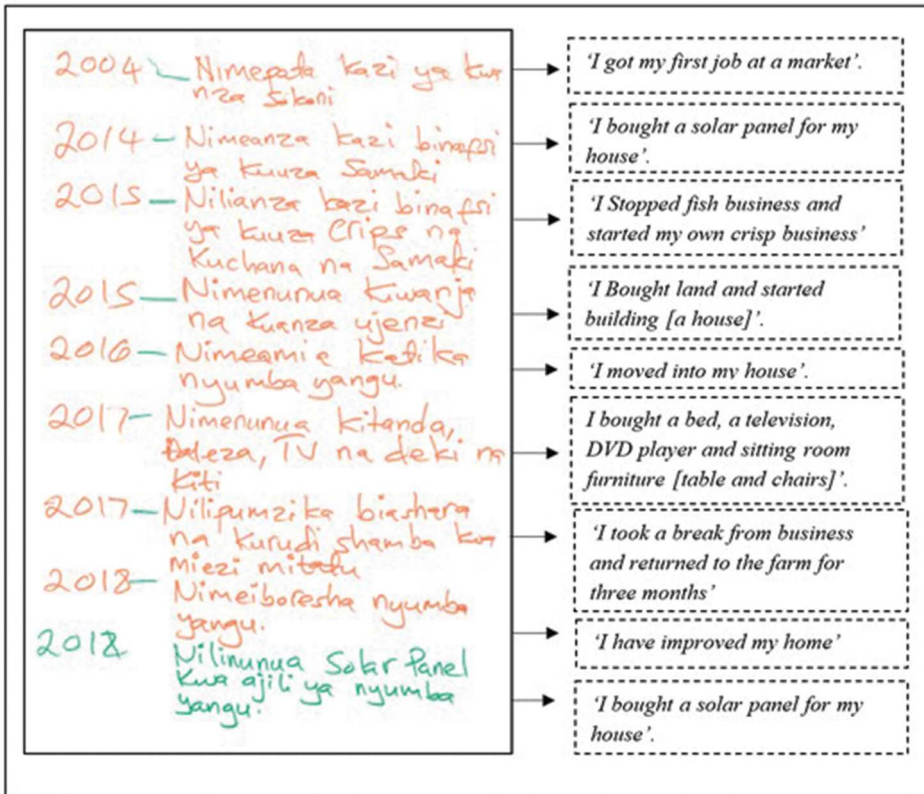 2004 Nimepata kazi ya kwa
nza Sokoni
2014 – Nimeanza kazi binafsi
ya kuuza Samaki
2015 – Nilianza kazi binafsi
ya kuuza Crips na
Kuchana na Samaki
2015 – Nimenunua Kiwanja
na kuanza ujenzi
2016 – Nimeamia katika
nyumba yangu.
2017 – Nimenunua kitanda,
TV na deki na
Kiti
2017 – Nilipumzika biashara
na kurudi shamba kwa
miezi mitatu
2018 – Nimeiboresha nyumba
yangu.
2018 Nilinunua Solar Panel
kwa ajili ya nyumba
yangu.
'I got my first job at a market'.
'I bought a solar panel for my
house'.
'I Stopped fish business and
started my own crisp business'
'I Bought land and started
building [a house]'.
'I moved into my house'.
I bought a bed, a television,
DVD player and sitting room
furniture [table and chairs]'.
'I took a break from business
and returned to the farm for
three months'
'I have improved my home'
'I bought a solar panel for my
house'.